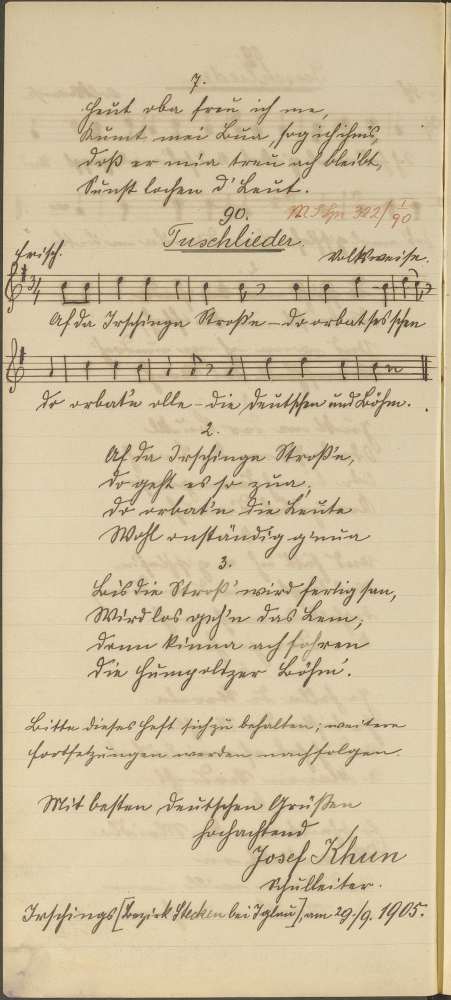 7.
Heut oba freu ich me,
Kumt mei Bua, sog ich ihms,
daß er mia treu ach bleibt,
Sunst lachen d' Leut.
90. M.Shn 322/1/90
Tuschlieder
Frisch. Volksweise.
3/4
Af da Irschinga Stroß'n – do orbat ses schen
do orbat'n olle – die Deutschen und Böhm.
2.
Af da Irschinga Stroß'n,
do geht es so zua,
do orbat'n die Leute
Wohl onständig g'nua
3.
Bis die Stroß' wird fertig san,
Wird los geh'n das Lem,
dann kinna ach fahren
die Humpoltzer Böhm'.
Bitte dieses Heft sich zu behalten; weitere
Fortsetzungen werden nachfolgen.
Mit besten deutschen Grüßen
hochachtend
Josef Khun
Schulleiter.
Irschings [Bezirk Stecken bei Iglau], am 29./9. 1905.